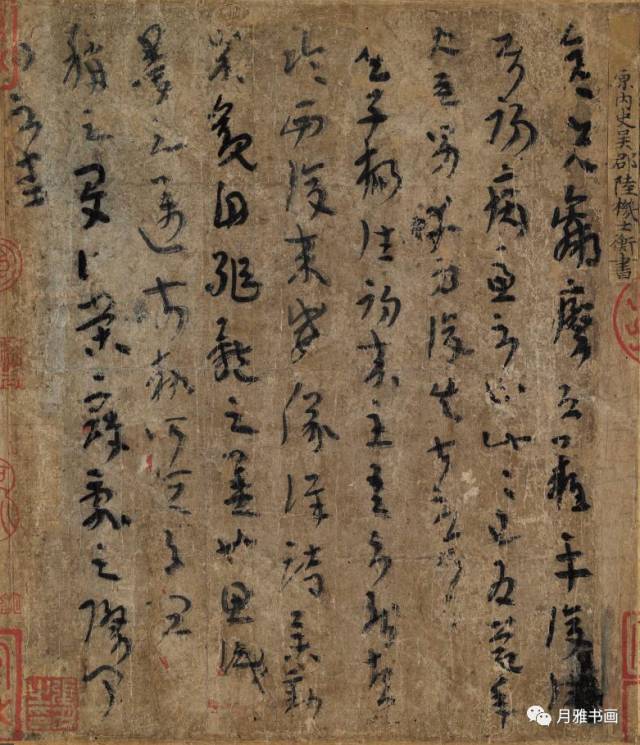 原內史吳郡陸機士衡書
彦先羸瘵恐難平復往屬
初病慮不止此此已為慶承
使唯男幸為復失前憂耳
吳子楊往初來主吾不能盡
臨西復來威儀詳跱舉動
成觀自軀體之美也思識
量之邁前執所恒有宜
稱之夏伯榮寇亂之際聞
問不悉
月雅书画